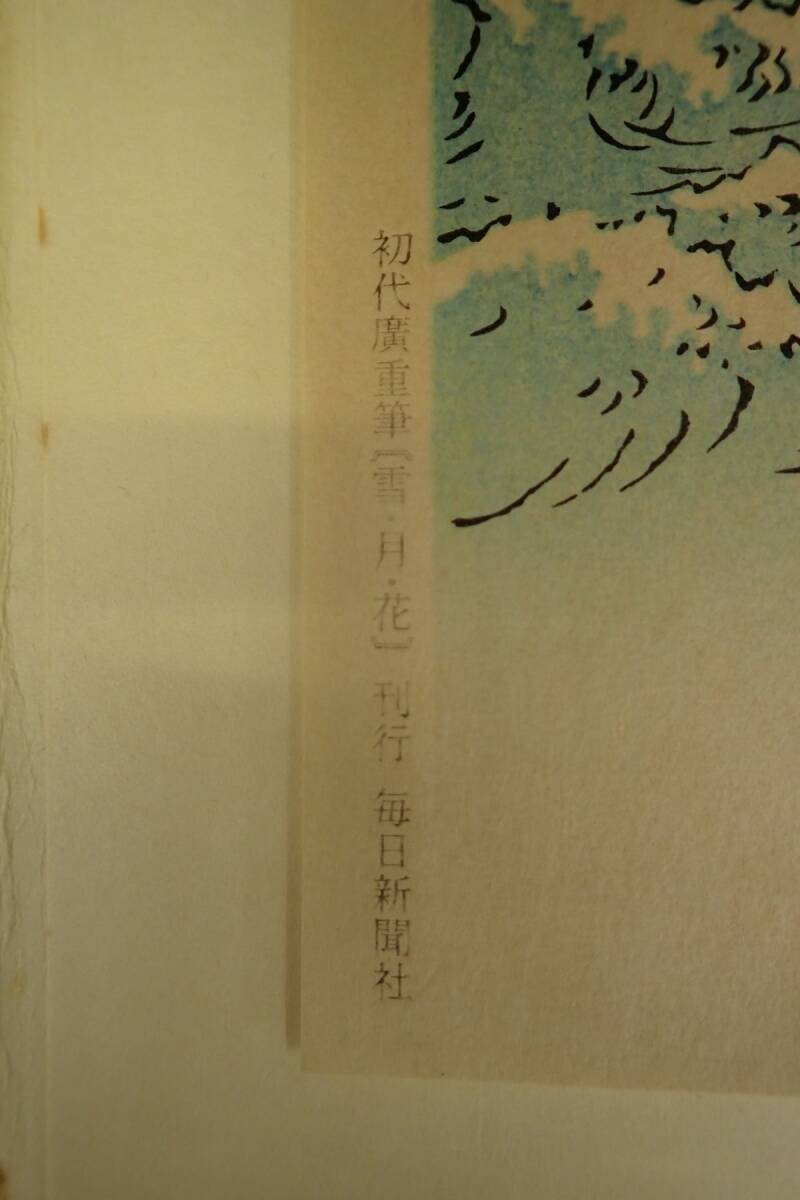 初代廣重筆〔雪・月・花〕 刊行 毎日新聞社